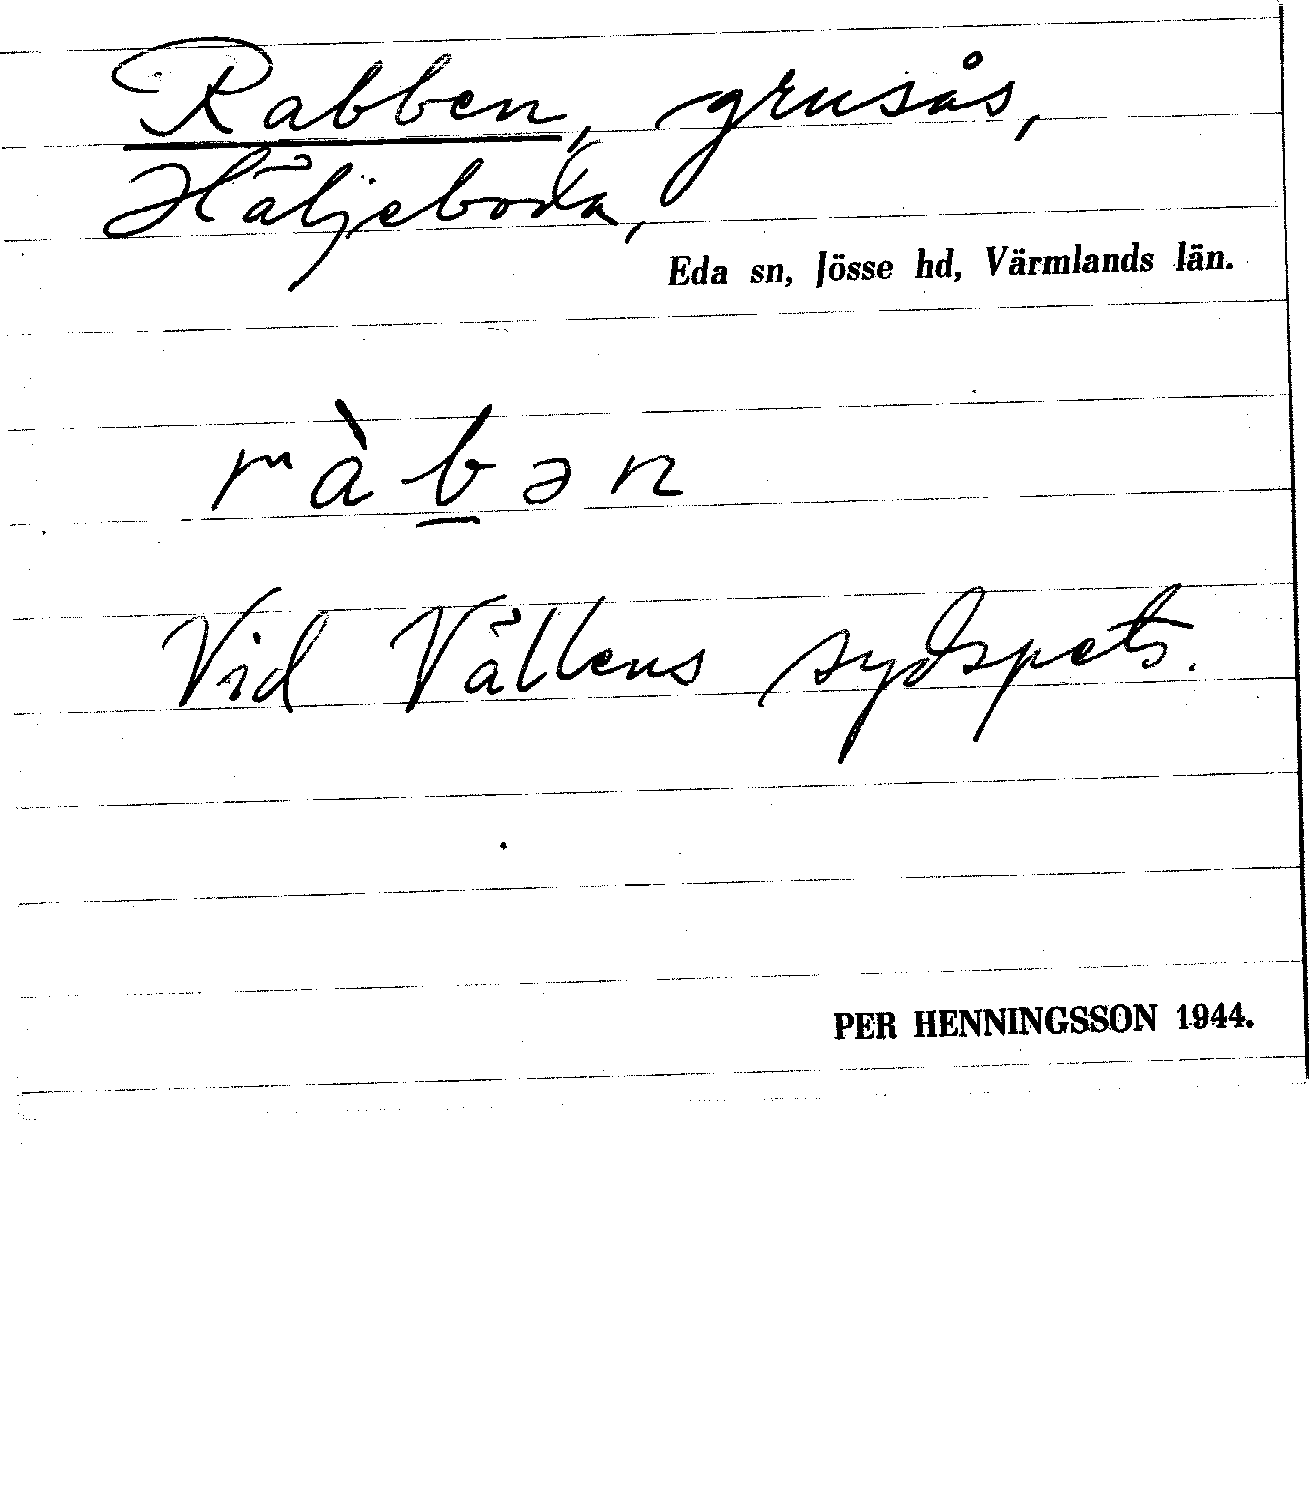 Rabben, grusås,
Häljeboda,
Eda sn, Jösse hd, Värmlands län.
ràb̲ən
Vid Vällens sydspets.
PER HENNINGSSON 1944.